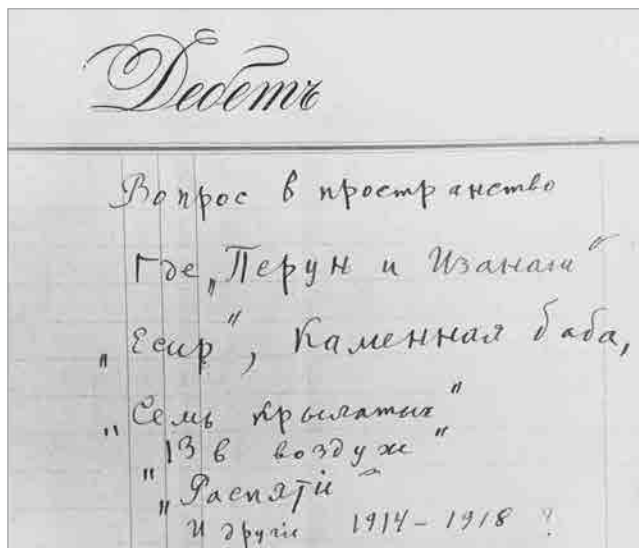 Дебетъ
Вопрос в пространство
Где „Перун и Изанаги“
„Есир“, Каменная баба,
„Семь крылатых“
„13 в воздухе“
„Распятiй“
И другiе 1914–1918 ?